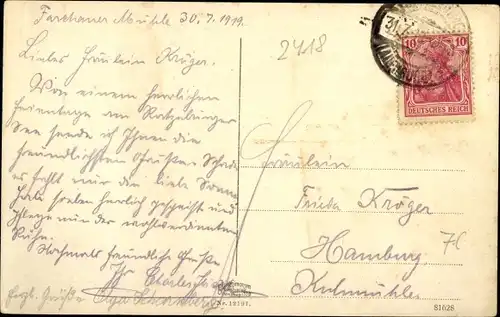 Farchauer Mühle 30.7.1919.
Liebes Fräulein Kröger.
Von einem herrlichen
Ferientage am Ratzeburger
See sende ich Ihnen die
freundlichsten Grüße. Schade
es fehlt nur die liebe Sonne
Habe soeben herlich gespeist und
pflege nun der wohlverdienten
Ruhe.
Nochmals freundliche Grüße
Ihr
Herzl. Grüße Olga
2418
31.7.
10 10
DEUTSCHES REICH
Fräulein
Frieda Kröger
Hamburg
Kuhmühle
7c
No. 19191.
81628